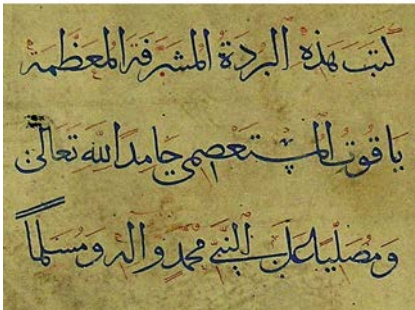 كتب هذه البردة المشرفة المعظمة
ياقوت المستعصمي حامدا الله تعالى
ومصليا على النبي محمد وآله ومسلما